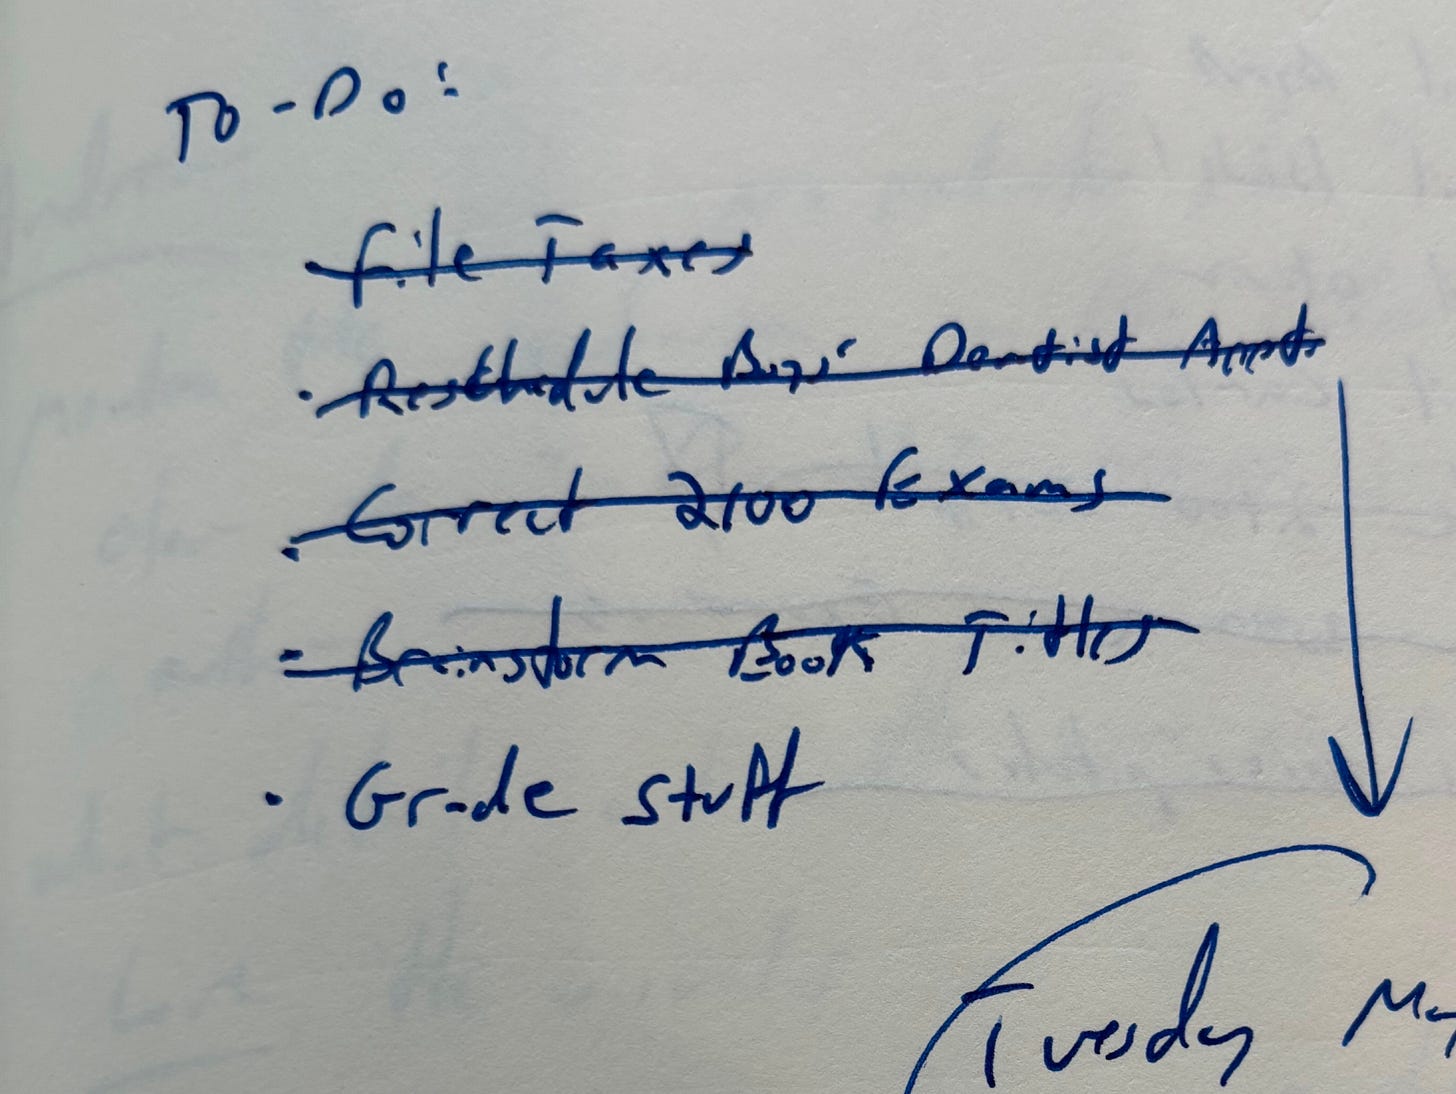 To-Do:
· File Taxes
· Reschedule Boys' Dentist Appt.
· Correct 2100 Exams
- Brainstorm Book Titles
· Grade stuff
Tuesday